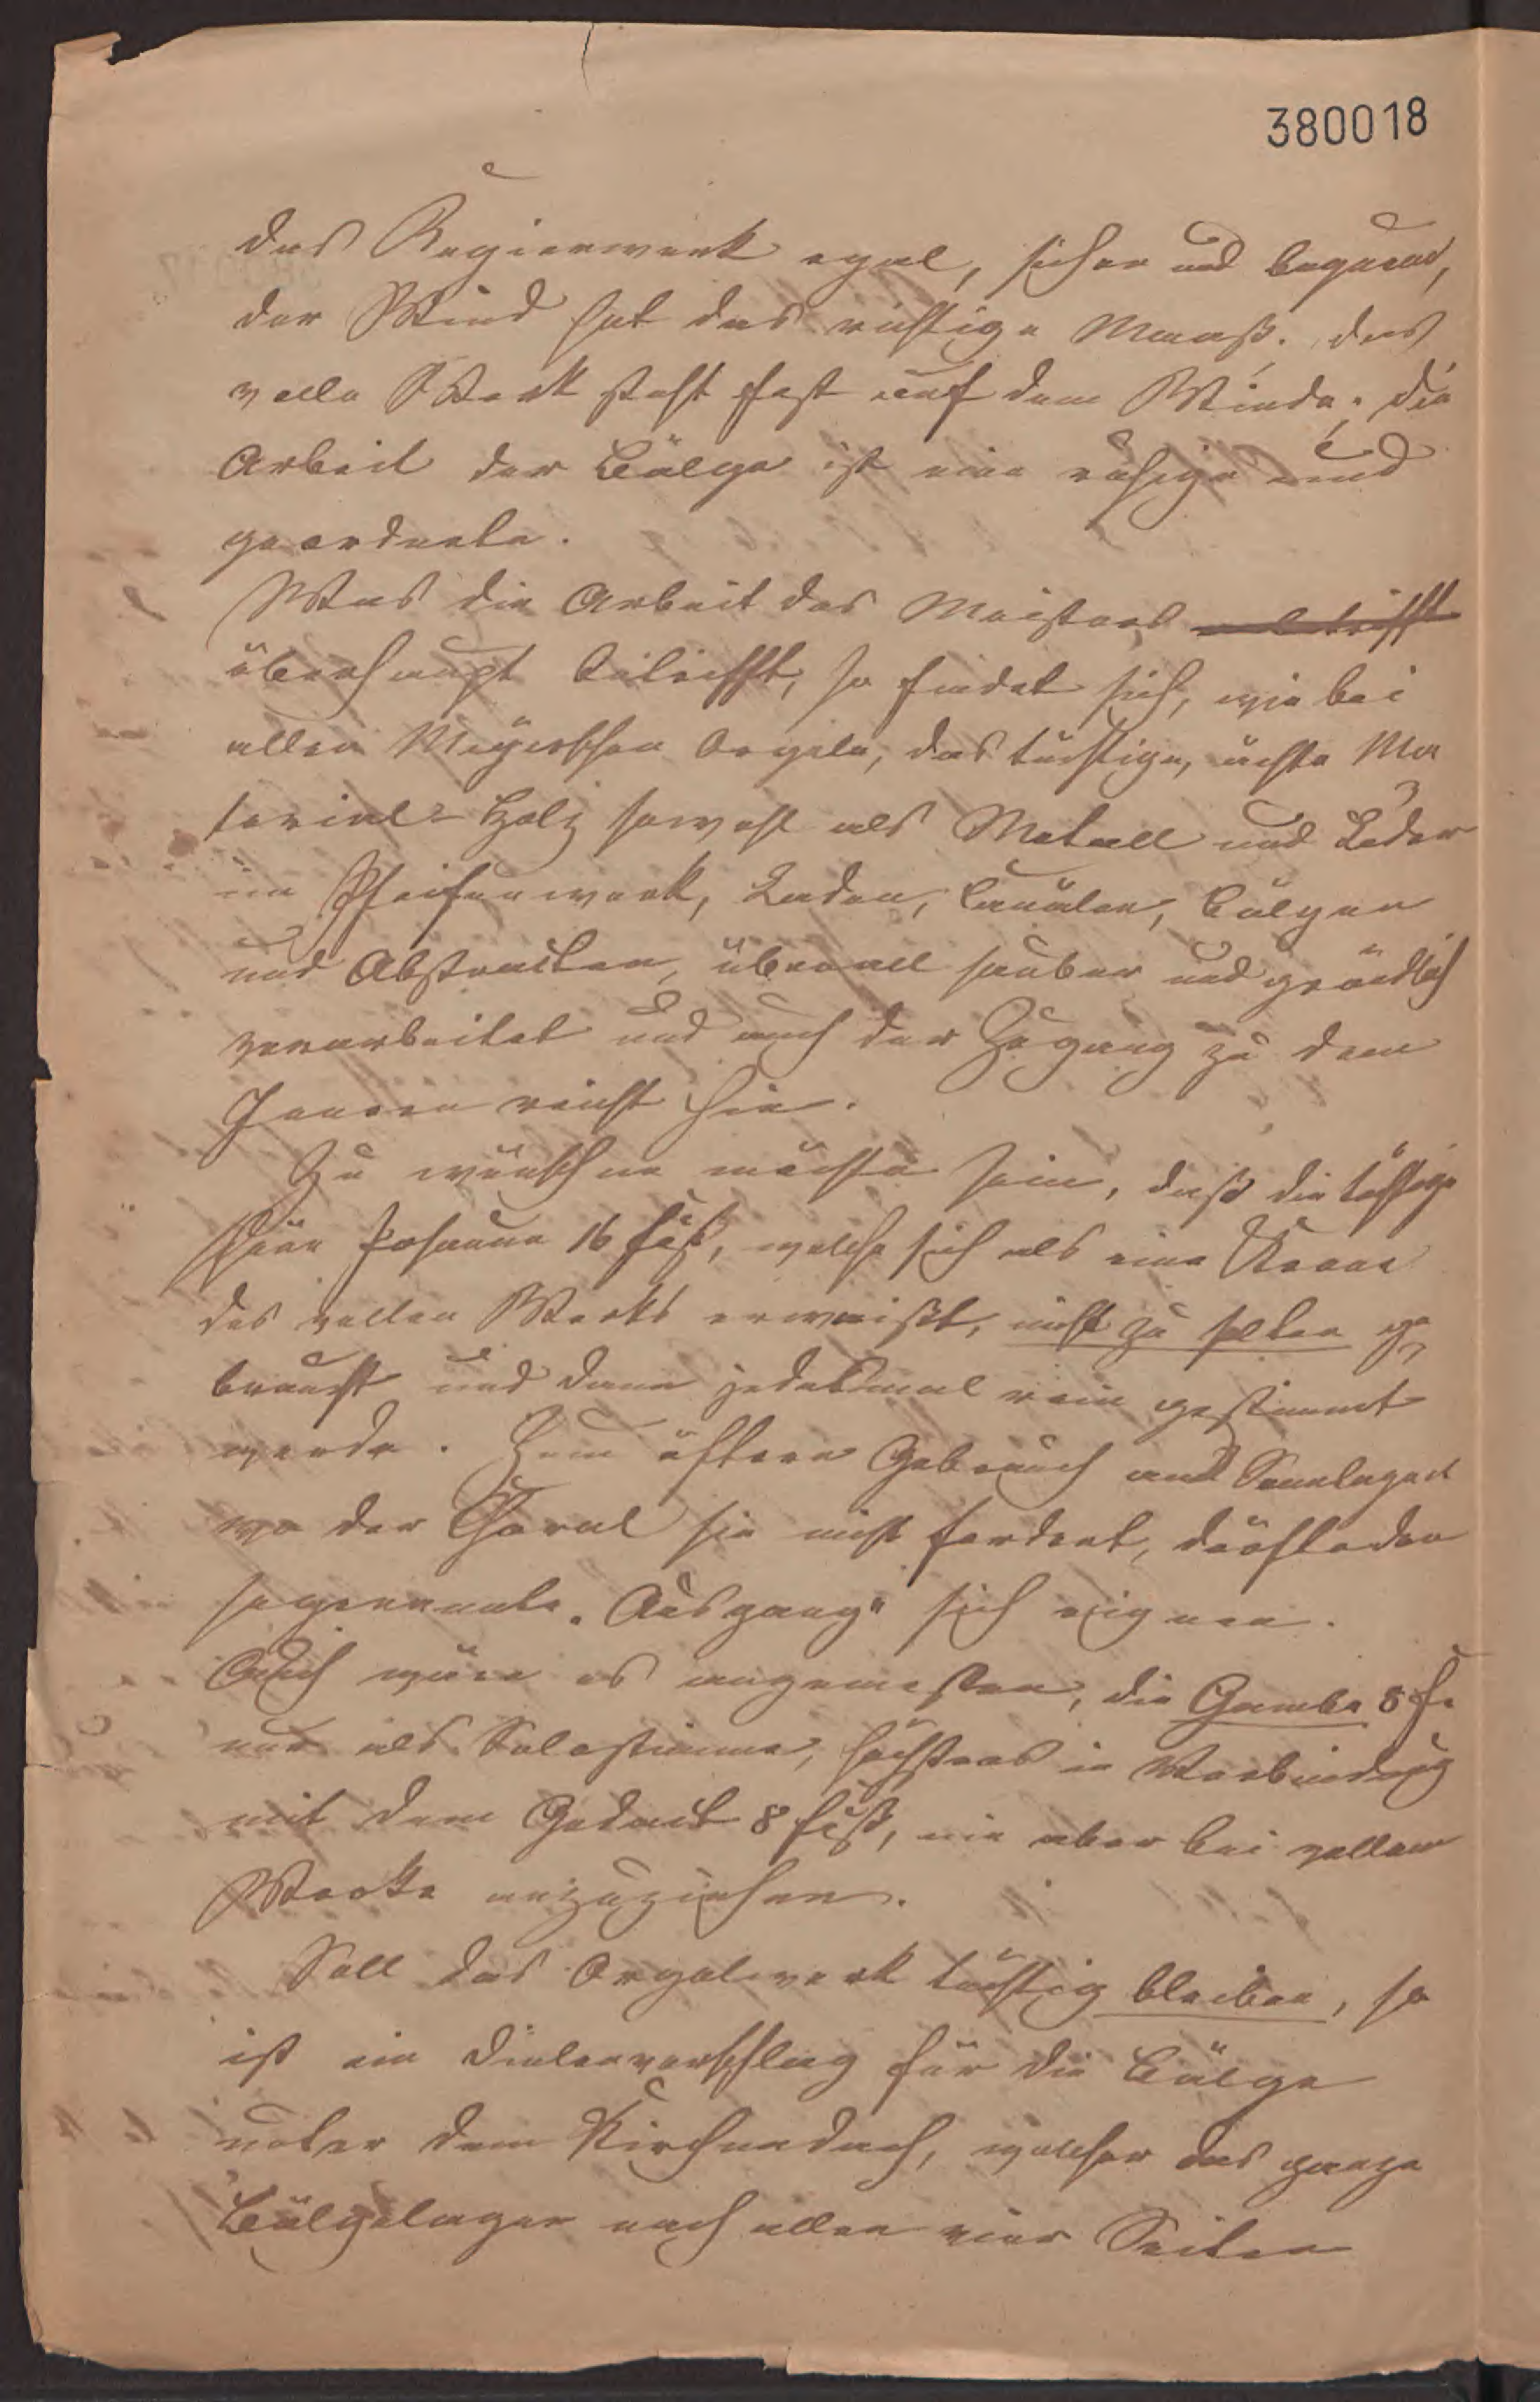 380018
das Regierwerk egal, sicher und bequem,
der Wind hat das richtige Maaß. das
volle Werk steht fest auf dem Winde; die
Arbeit der Bälge ist eine ruhige und
geordnete.
Was die Arbeit des Meisters
überhaupt betrifft, so findet sich, wie bei
allen Meyerschen Orgeln, das tüchtige, ächte Ma
terial- Holz sowohl als Metall und Leder
im Pfeifenwerk, Laden, Canälen, Bälgen
und Abstracten, überall sauber und gründlich
verarbeitet und auch der Zugang zu dem
Innern reicht hin.
Zu wünschen möchte sein, daß die
schöne Posaune 16 Fuß, welche sich als eine Krone
des vollen Werks erweißt, nicht zu selten ge
braucht und dann jedesmal rein gestimmt
werde. Zum öftern Gebrauch an Sonntagen
wo der Choral sie nicht fordert, dürfte der
sogenannte „Ausgang“ sich eignen.
Auch wäre es angemessen, die Gamba 8 F.
nur als Solostimme, höchstens in Verbindung
mit dem Gedact 8 Fuß, nie aber bei vollem
Werke anzuziehen.
Soll das Orgelwerk tüchtig bleiben, so
ist ein Dielenverschlag für die Bälge
unter dem Kirchendach, welcher das ganze
Bälgelager nach allen vier Seiten